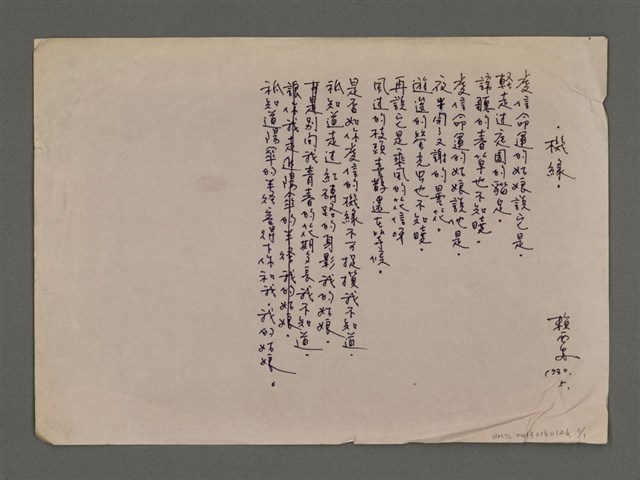 ·機緣·
賴西安
1980.5.
虔信命運的姑娘說它是·
輕走過庭園的貓足·
諦聽的春草也不知曉·
虔信命運的姑娘說他是·
夜半開了又謝的曇花·
遊逡的螢光虫也不知曉·
再說它是乘風的花信呀
風過的枝頭青鬱還在等候·
是否如你虔信的機緣不可捉摸我不知道·
祇知道走過紅磚路的身影我的姑娘·
有是別向我青春的花期多長我不知道·
讓你我走進陽傘的半徑我的姑娘·
祇知道陽傘的半徑容得下你和我·我的姑娘。
NMTL 20130160126 1/1